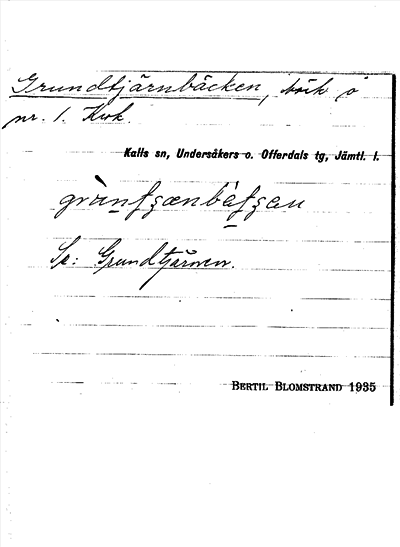 Grundtjärnbäcken, bäck å
nr. 1. Kvk.
Kalls sn, Undersåkers o. Offerdals tg, Jämtl. l.
Se: Grundtjärnen.
BERTIL BLOMSTRAND 1935